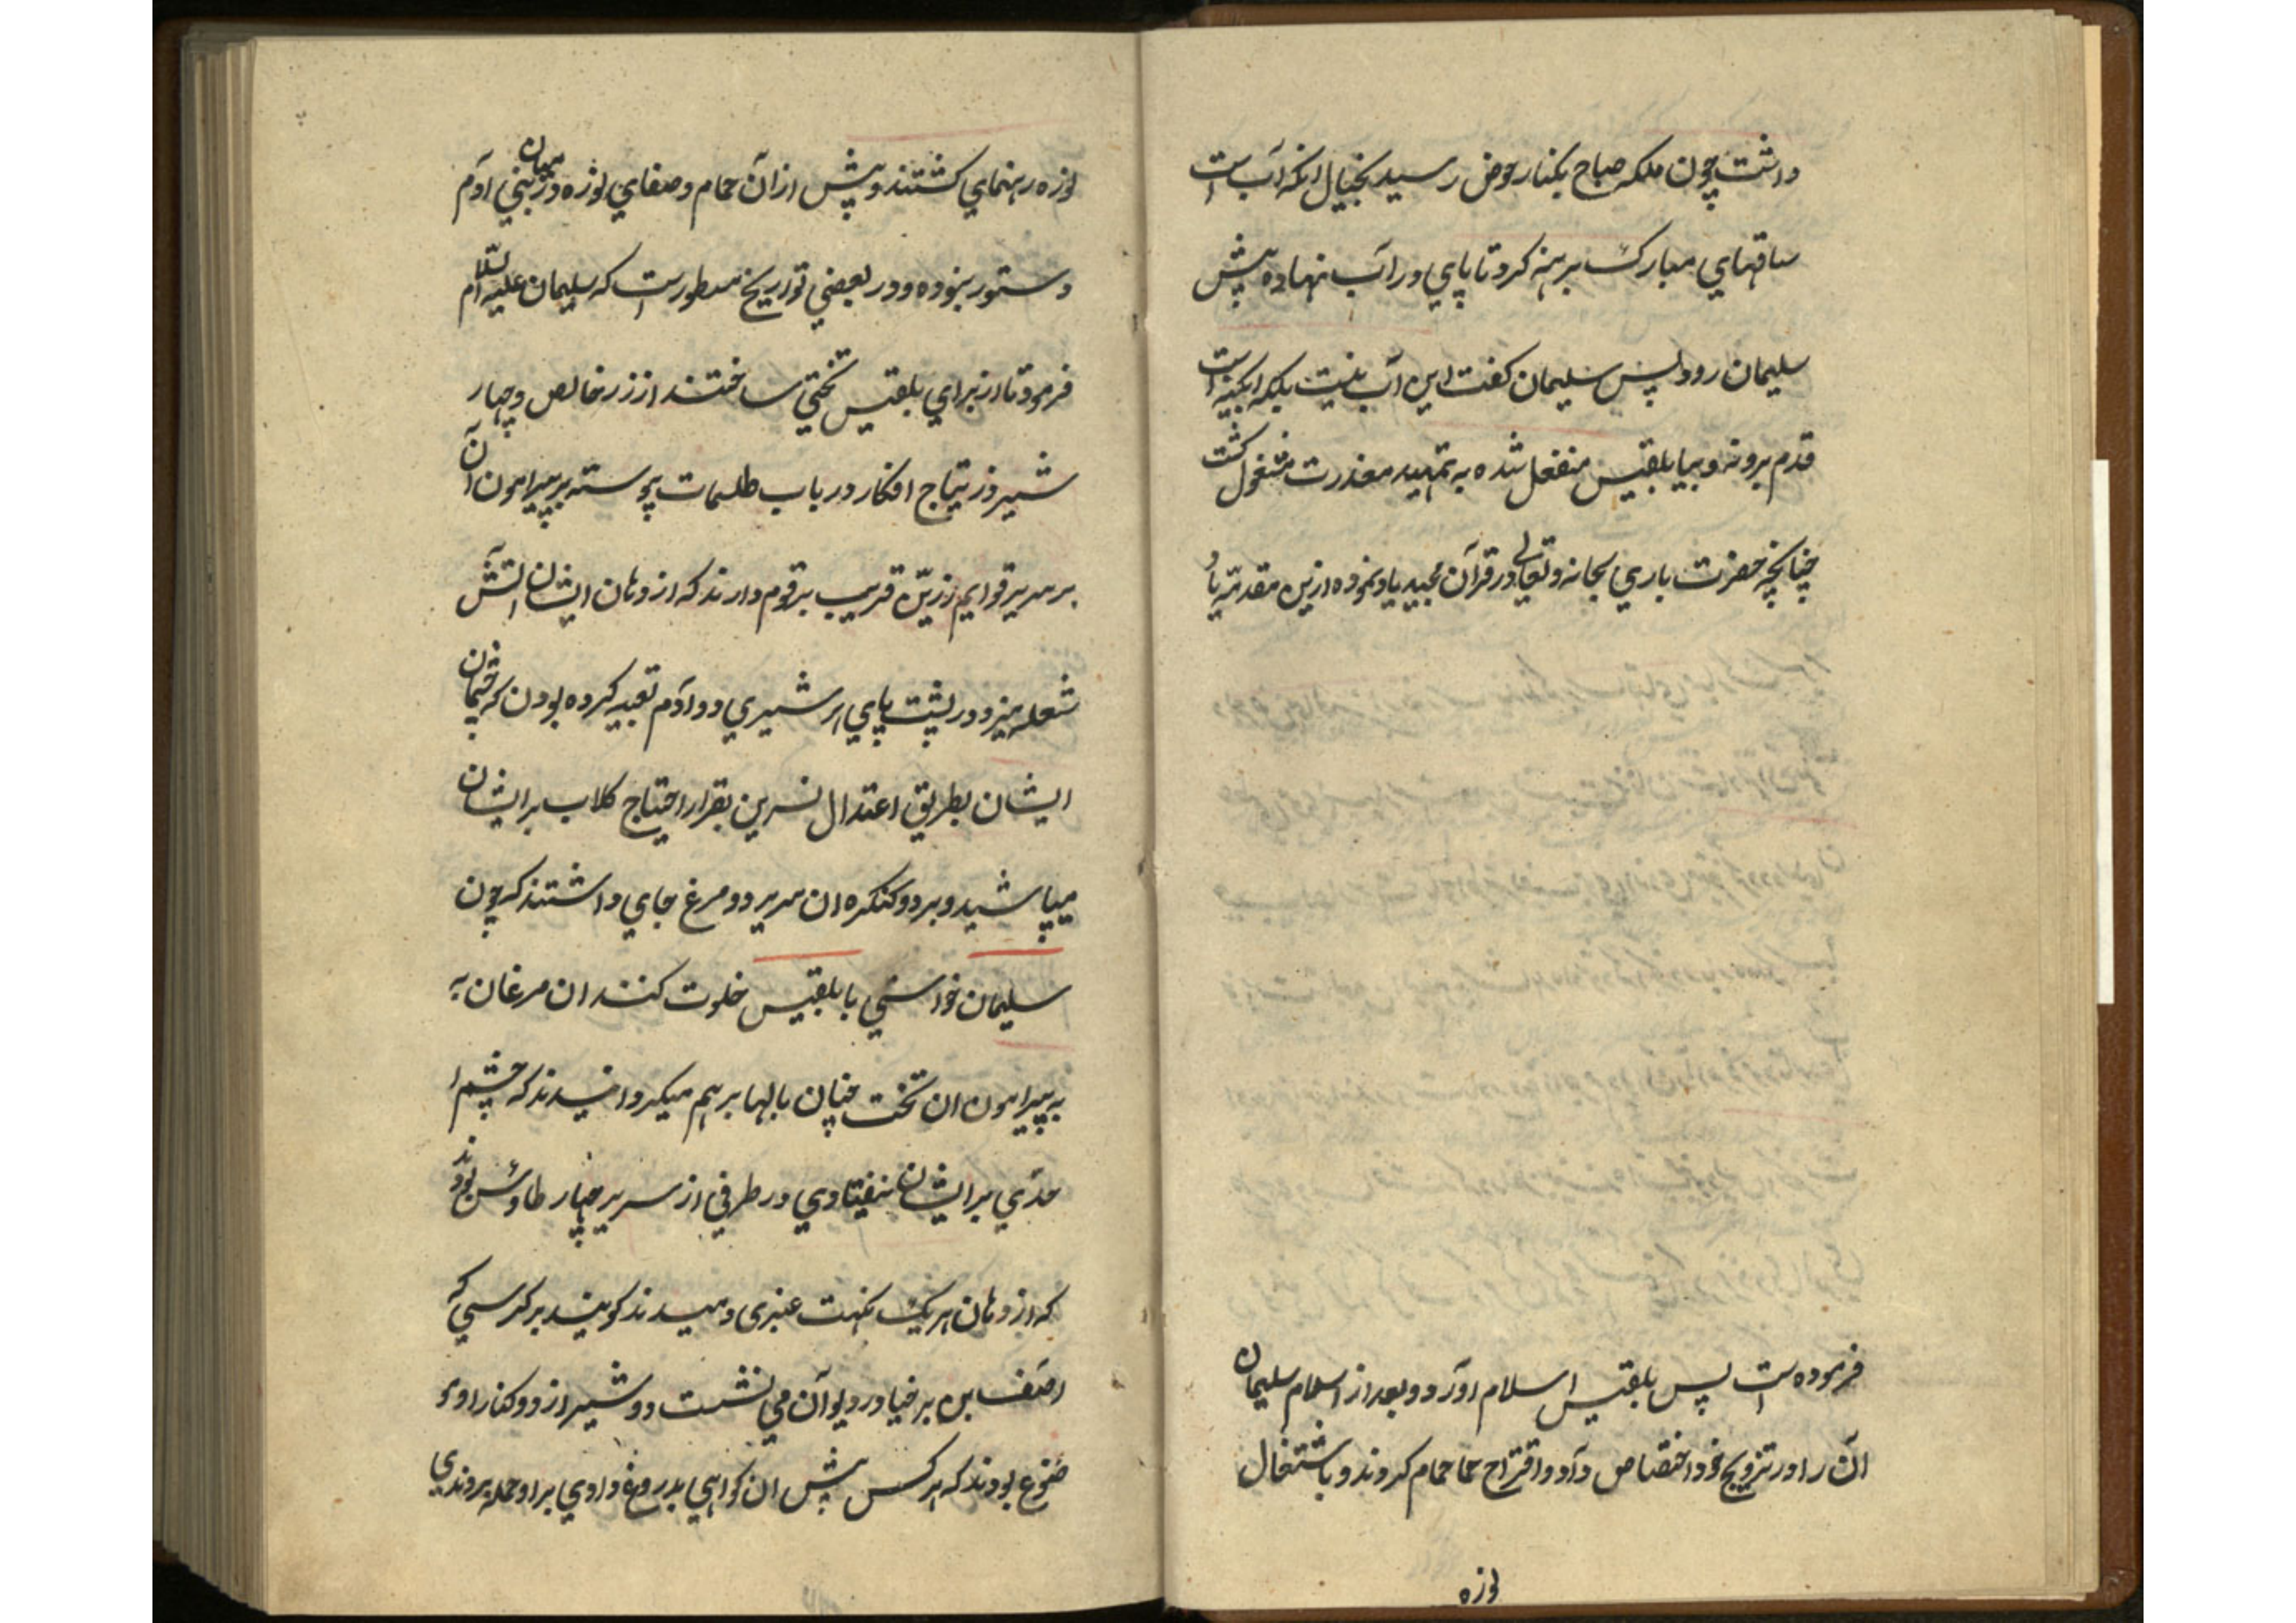 داشت چون ملکه صباح بکنار حوض رسید بخیال انکه آب است
ساقهای مبارک برهنه کرد تا پای در آب نهاده پیش
سلیمان رود پس سلیمان کفت این آب نیست بلکه ابکینه است
قدم برونه و بیا بلقیس منفعل شده به تمهید معذرت مشغول کشت
چنانچه حضرت باری سبحانه و تعالی در قرآن مجید یاد نموده ازین مقدمه
فرموده است پس بلقیس اسلام آورد و بعد از اسلام سلیمان
آن را در تزویج خود اختصاص داد و اقتراح حمام کردند و باشتغال
لوزه
لوزه رهنمای کشتند و پیش از آن حمام و صفای لوزه در میان بنی آدم
دستور نبوده و در بعضی تواریخ مسطورست که سلیمان علیه السلام
فرمود تا از برای بلقیس تختی ساختند از زر خالص و چهار
شیر وز نتیاج افکار در باب طلسمات پیوسته بر پیرامون آن
بر سریر قوایم زرین قریب برقوم دارند که از دهان ایشان آتش
شعله میزد و در پشت پای هر شیری دو آدم تعبیر کرده بودن که چشمان
ایشان بطریق اعتدال نسرین بقرار احتیاج کلاب بر ایشان
میپاشید و بر دو کنکره ان سریر دو مرغ جای داشتند که چون
سلیمان خواستی با بلقیس خلوت کنند ان مرغان به
به پیرامون ان تخت چنان بالها بر هم میکردانیدند که چشم
حدی بر ایشان نیفتادی در طرفی از سریر چهار طاوس بودند
که از دهان هر یک نکهت عنبری دمیدند کویند بر کرسی که
اصف بن برخیا در دیوان می نشست دو شیر از دو کنار او
موضوع بودند که هر کس پیش ان کواهی بدروغ دادی بر او حمله بردندی